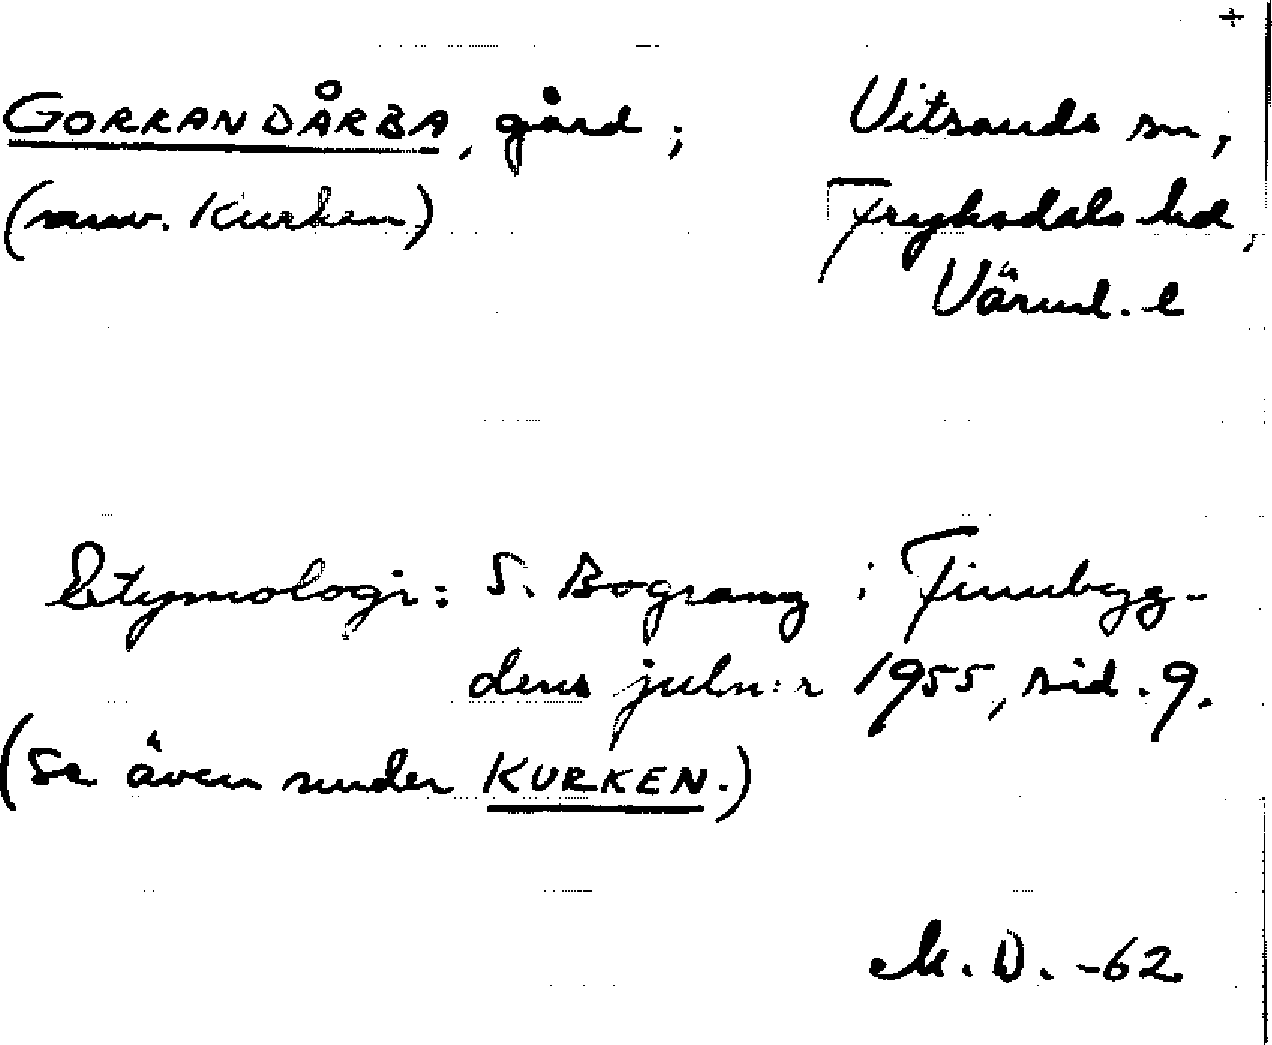 +
GORKANDÅRBA, gård; Vitsands sn,
(nuv. Kurken) Fryksdals hd,
Värml. l
Etymologi: S. Bograng i Finnbyg-
dens juln:r 1955, sid. 9.
(Se även under KURKEN.)
M. D. -62